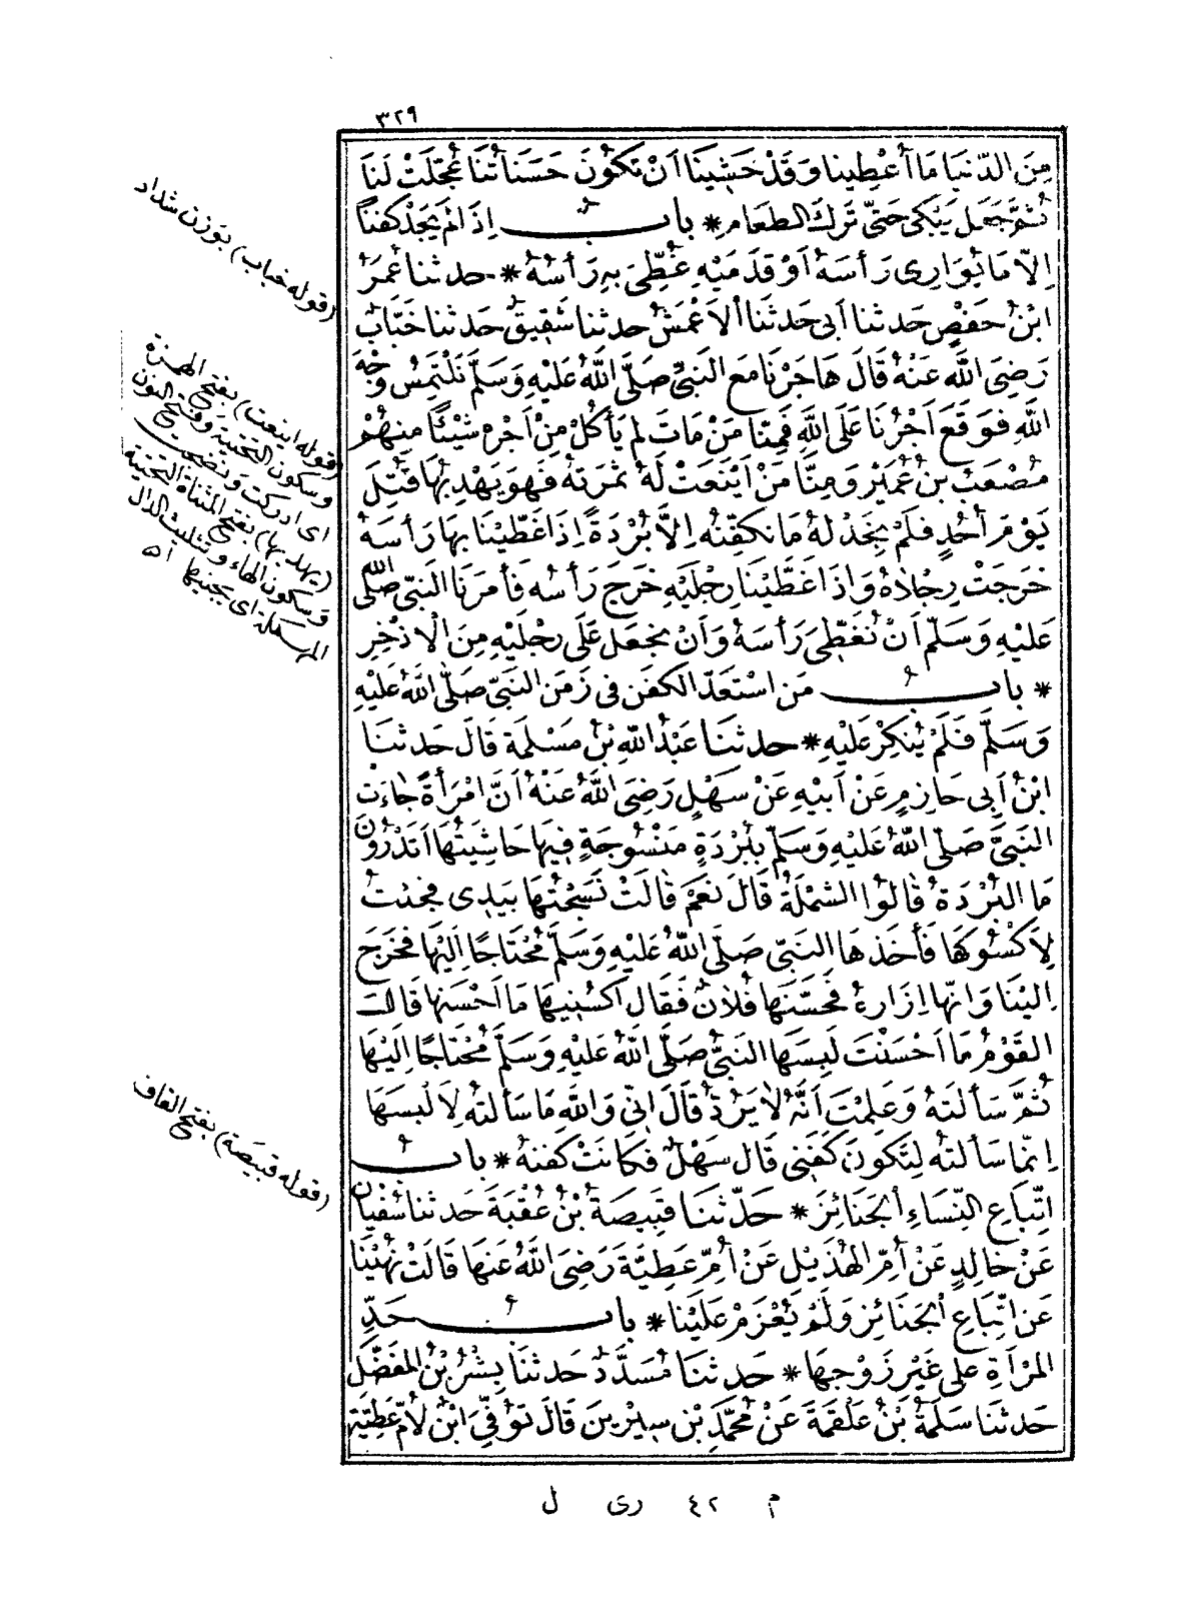 ٣٢٩
مِنَ الدُّنْيَا مَا أُعْطِينَا وَقَدْ خَشِينَا أَنْ تَكُونَ حَسَنَاتُنَا عُجِّلَتْ لَنَا
ثُمَّ جَعَلَ يَبْكِى حَتَّى تَرَكَ الطَّعَامَ * بابُ إِذَا لَمْ يَجِدْ كَفَنًا
إِلَّا مَا يُوَارِى رَأْسَهُ أَوْ قَدَمَيْهِ غُطِّىَ بِهِ رَأْسُهُ * حدثنا عُمَرُ
ابْنُ حَفْصٍ حَدثنا أَبِى حَدثَنَا الْأَعْمَشُ حدثنا شَقِيقٌ حَدثنا خَبَّابٌ
رَضِىَ اللَّهُ عَنْهُ قَالَ هَاجَرْنَا مَعَ النَّبِىِّ صَلَّى اللَّهُ عَلَيْهِ وَسَلَّمَ نَلْتَمِسُ وَجْهَ
اللَّهِ فَوَقَعَ أَجْرُنَا عَلَى اللَّهِ فَمِنَّا مَنْ مَاتَ لَمْ يَأْكُلْ مِنْ أَجْرِهِ شَيْئًا مِنْهُمْ
مُصْعَبُ بْنُ عُمَيْرٍ وَمِنَّا مَنْ أَيْنَعَتْ لَهُ ثَمَرَتُهُ فَهُوَ يَهْدِبُهَا قُتِلَ
يَوْمَ أُحُدٍ فَلَمْ نَجِدْ لَهُ مَا نُكَفِّنُهُ إِلَّا بُرْدَةً إِذَا غَطَّيْنَا بِهَا رَأْسَهُ
خَرَجَتْ رِجْلَاهُ وَإِذَا غَطَّيْنَا رِجْلَيْهِ خَرَجَ رَأْسُهُ فَأَمَرَنَا النَّبِىُّ صَلَّى اللَّهُ
عَلَيْهِ وَسَلَّمَ أَنْ نُغَطِّىَ رَأْسَهُ وَأَنْ نَجْعَلَ عَلَى رِجْلَيْهِ مِنَ الْإِذْخِرِ
* بابُ مَنِ اسْتَعَدَّ الْكَفَنَ فِى زَمَنِ النَّبِىِّ صَلَّى اللَّهُ عَلَيْهِ
وَسَلَّمَ فَلَمْ يُنْكِرْ عَلَيْهِ * حدثنَا عَبْدُ اللَّهِ بْنُ مَسْلَمَةَ قَالَ حَدثنَا
ابْنُ أَبِى حَازِمٍ عَنْ أَبِيهِ عَنْ سَهْلٍ رَضِىَ اللَّهُ عَنْهُ أَنَّ امْرَأَةً جَاءَتِ
النَّبِىَّ صَلَّى اللَّهُ عَلَيْهِ وَسَلَّمَ بِبُرْدَةٍ مَنْسُوجَةٍ فِيهَا حَاشِيَتُهَا أَتَدْرُونَ
مَا الْبُرْدَةُ قَالُوا الشَّمْلَةُ قَالَ نَعَمْ قَالَتْ نَسَجْتُهَا بِيَدِى فَجِئْتُ
لِأَكْسُوَكَهَا فَأَخَذَهَا النَّبِىُّ صَلَّى اللَّهُ عَلَيْهِ وَسَلَّمَ مُحْتَاجًا إِلَيْهَا فَخَرَجَ
إِلَيْنَا وَإِنَّهَا إِزَارُهُ فَحَسَّنَهَا فُلَانٌ فَقَالَ اكْسُنِيهَا مَا أَحْسَنَهَا قَالَتِ
الْقَوْمُ مَا أَحْسَنْتَ لَبِسَهَا النَّبِىُّ صَلَّى اللَّهُ عَلَيْهِ وَسَلَّمَ مُحْتَاجًا إِلَيْهَا
ثُمَّ سَأَلْتَهُ وَعَلِمْتَ أَنَّهُ لَا يَرُدُّ قَالَ إِنِّى وَاللَّهِ مَا سَأَلْتُهُ لِأَلْبَسَهَا
إِنَّمَا سَأَلْتُهُ لِتَكُونَ كَفَنِى قَالَ سَهْلٌ فَكَانَتْ كَفَنَهُ * بابُ
اتِّبَاعِ النِّسَاءِ الْجَنَائِزَ * حَدَّثَنَا قَبِيصَةُ بْنُ عُقْبَةَ حَدثنا سُفْيَانُ
عَنْ خَالِدٍ عَنْ أُمِّ الْهُذَيْلِ عَنْ أُمِّ عَطِيَّةَ رَضِىَ اللَّهُ عَنْهَا قَالَتْ نُهِينَا
عَنِ اتِّبَاعِ الْجَنَائِزِ وَلَمْ يُعْزَمْ عَلَيْنَا * بابُ حَدِّ
الْمَرْأَةِ عَلَى غَيْرِ زَوْجِهَا * حَدثنَا مُسَدَّدٌ حَدثنَا بِشْرُ بْنُ الْمُفَضَّلِ
حَدثنَا سَلَمَةُ بْنُ عَلْقَمَةَ عَنْ مُحَمَّدِ بْنِ سِيرِينَ قَالَ تُوُفِّىَ ابْنٌ لِأُمِّ عَطِيَّةَ
(قوله خباب) بوزن شداد
(قوله اينعت) بفتح الهمزة
وسكون التحتية وفتح النون
اى ادركت ونضجت
(يهدبها) بفتح المثناة التحتية
وسكون الهاء وتثليث الدال
المهملة اى يجنيها اه
(قوله قبيصة) بفتح القاف
م ٤٢ رى ل